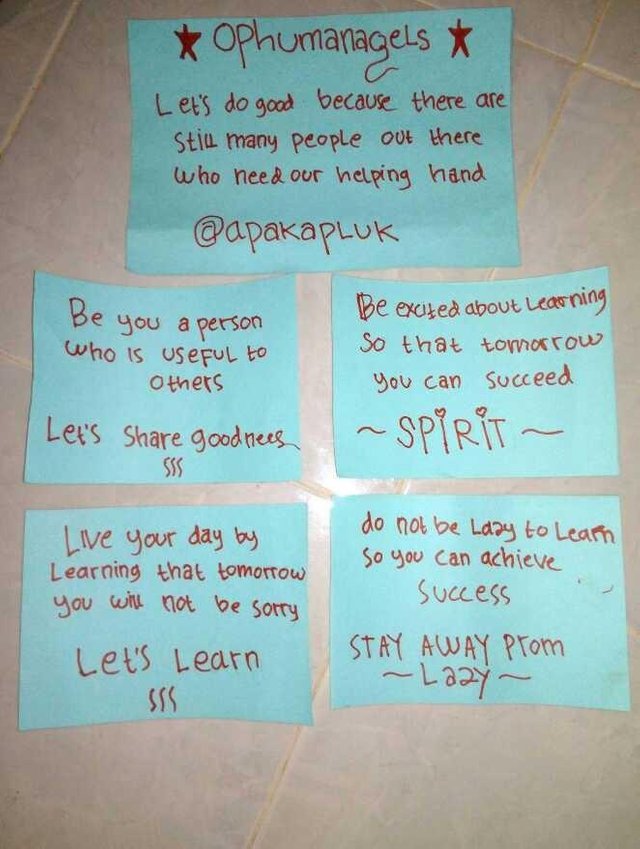 ★ Ophumanagels ★
Let's do good because there are
still many people out there
who need our helping hand
@apakapluk
Be you a person
who is useful to
others
Let's share goodnees
SSS
Be excited about Learning
So that tomorrow
you can succeed
~ SPIRIT ~
Live your day by
Learning that tomorrow
you will not be sorry
Let's Learn
SSS
do not be Lazy to Learn
So you can achieve
Success
STAY AWAY From
~ Lazy ~